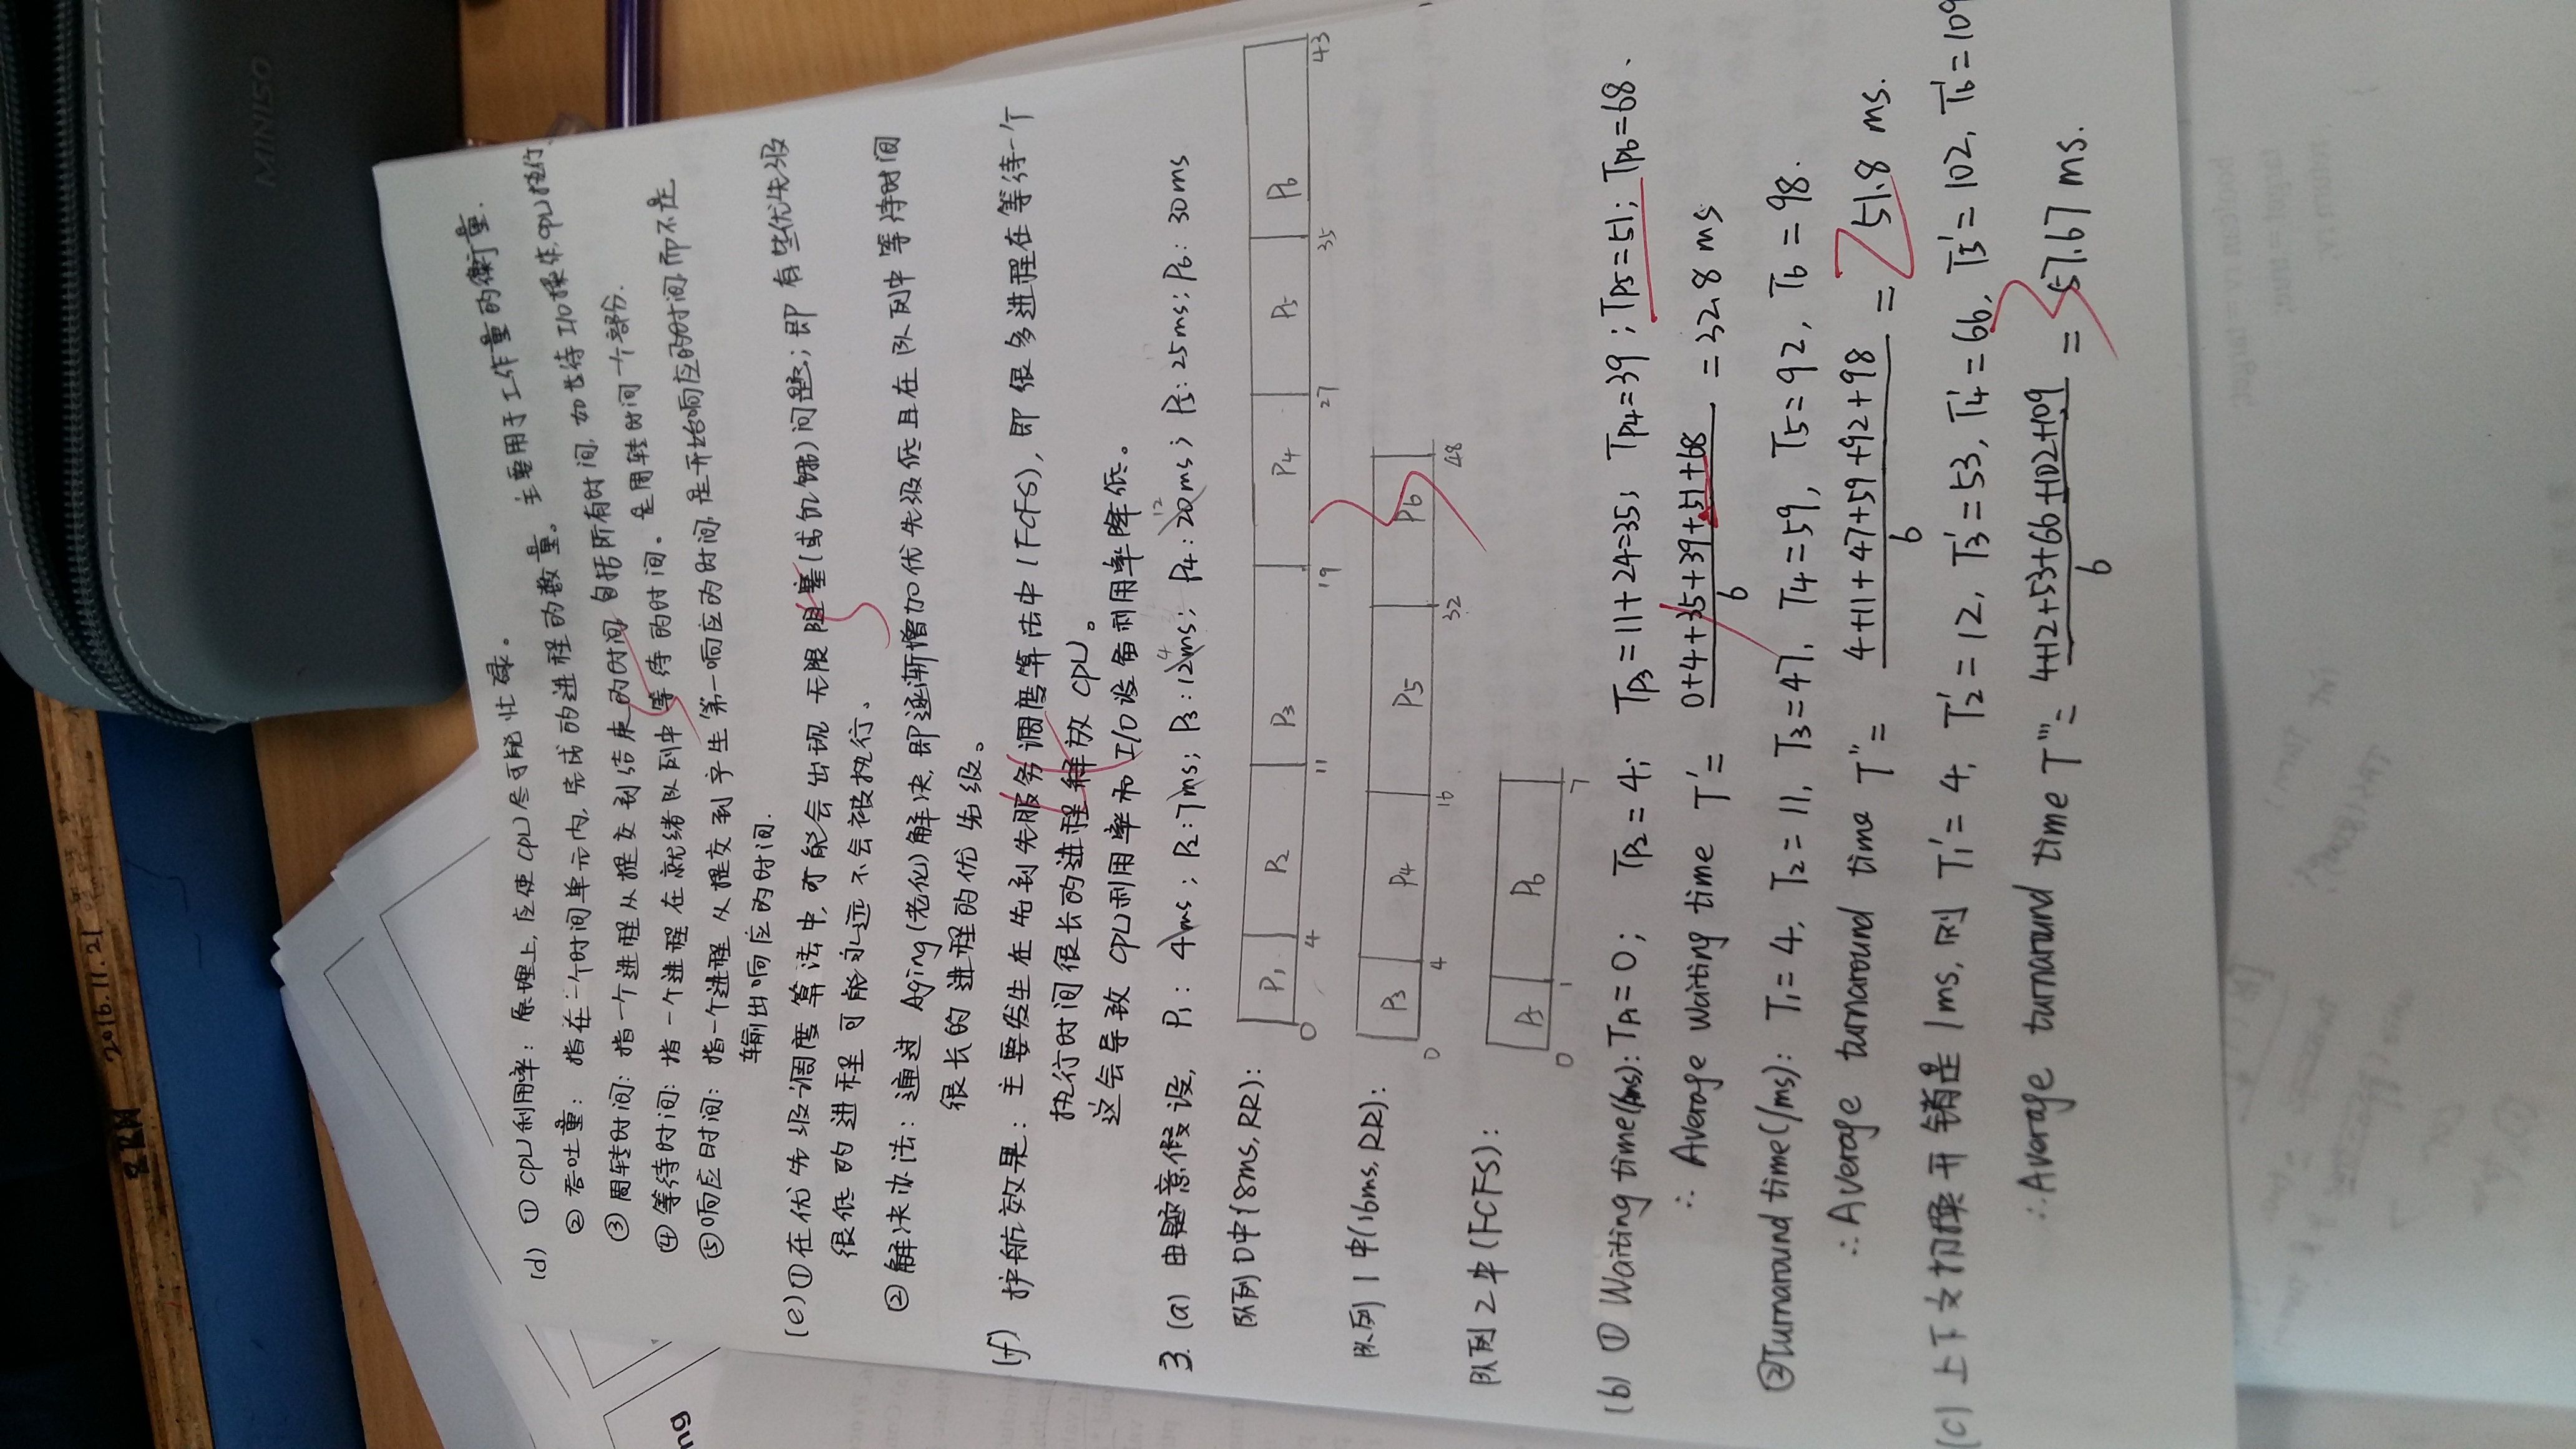 MINISO
2016.11.21
(d) ① CPU利用率: 原理上,应使CPU尽可能忙碌。
② 吞吐量: 指在一个时间单元内,完成的进程的数量。主要用于工作量的衡量.
③ 周转时间: 指一个进程从提交到结束的时间,包括所有时间,如等待I/O操作,CPU执行.
④ 等待时间: 指一个进程在就绪队列中等待的时间。是周转时间一个部分.
⑤ 响应时间: 指一个进程从提交到产生第一响应的时间,是开始响应的时间,而不是
输出响应的时间.
(e) ① 在优先级调度算法中,可能会出现无限阻塞(或饥饿)问题; 即有些优先级
很低的进程可能永远不会被执行。
② 解决办法: 通过Aging(老化)解决,即逐渐增加优先级低且在队列中等待时间
很长的进程的优先级。
(f) 护航效果: 主要发生在先到先服务调度算法中(FCFS), 即很多进程在等待一个
执行时间很长的进程释放CPU。
这会导致CPU利用率和I/O设备利用率降低。
3. (a) 由题意假设, P1: 4ms; P2: 7ms; P3: 12ms; P4: 20ms; P5: 25ms; P6: 30ms
4 12
队列0中(8ms, RR):
P1 P2 P3 P4 P5 P6
0 4 11 19 27 35 43
队列1中(16ms, RR):
P3 P4 P5 P6
0 4 16 32 48
队列2中(FCFS):
P5 P6
0 1 7
(b) ① Waiting time(ms): TP1=0; TP2=4; TP3=11+24=35; TP4=39; TP5=51; TP6=68.
∴ Average waiting time T' = 0+4+35+39+51+68 / 6 = 32.8 ms
② Turnaround time(ms): T1=4, T2=11, T3=47, T4=59, T5=92, T6=98.
∴ Average turnaround time T'' = 4+11+47+59+92+98 / 6 = 51.8 ms.
(c) 上下文切换开销是1ms, 则 T1'=4, T2'=12, T3'=53, T4'=66, T5'=102, T6'=109
∴ Average turnaround time T''' = 4+12+53+66+102+109 / 6 = 57.67 ms.
ng